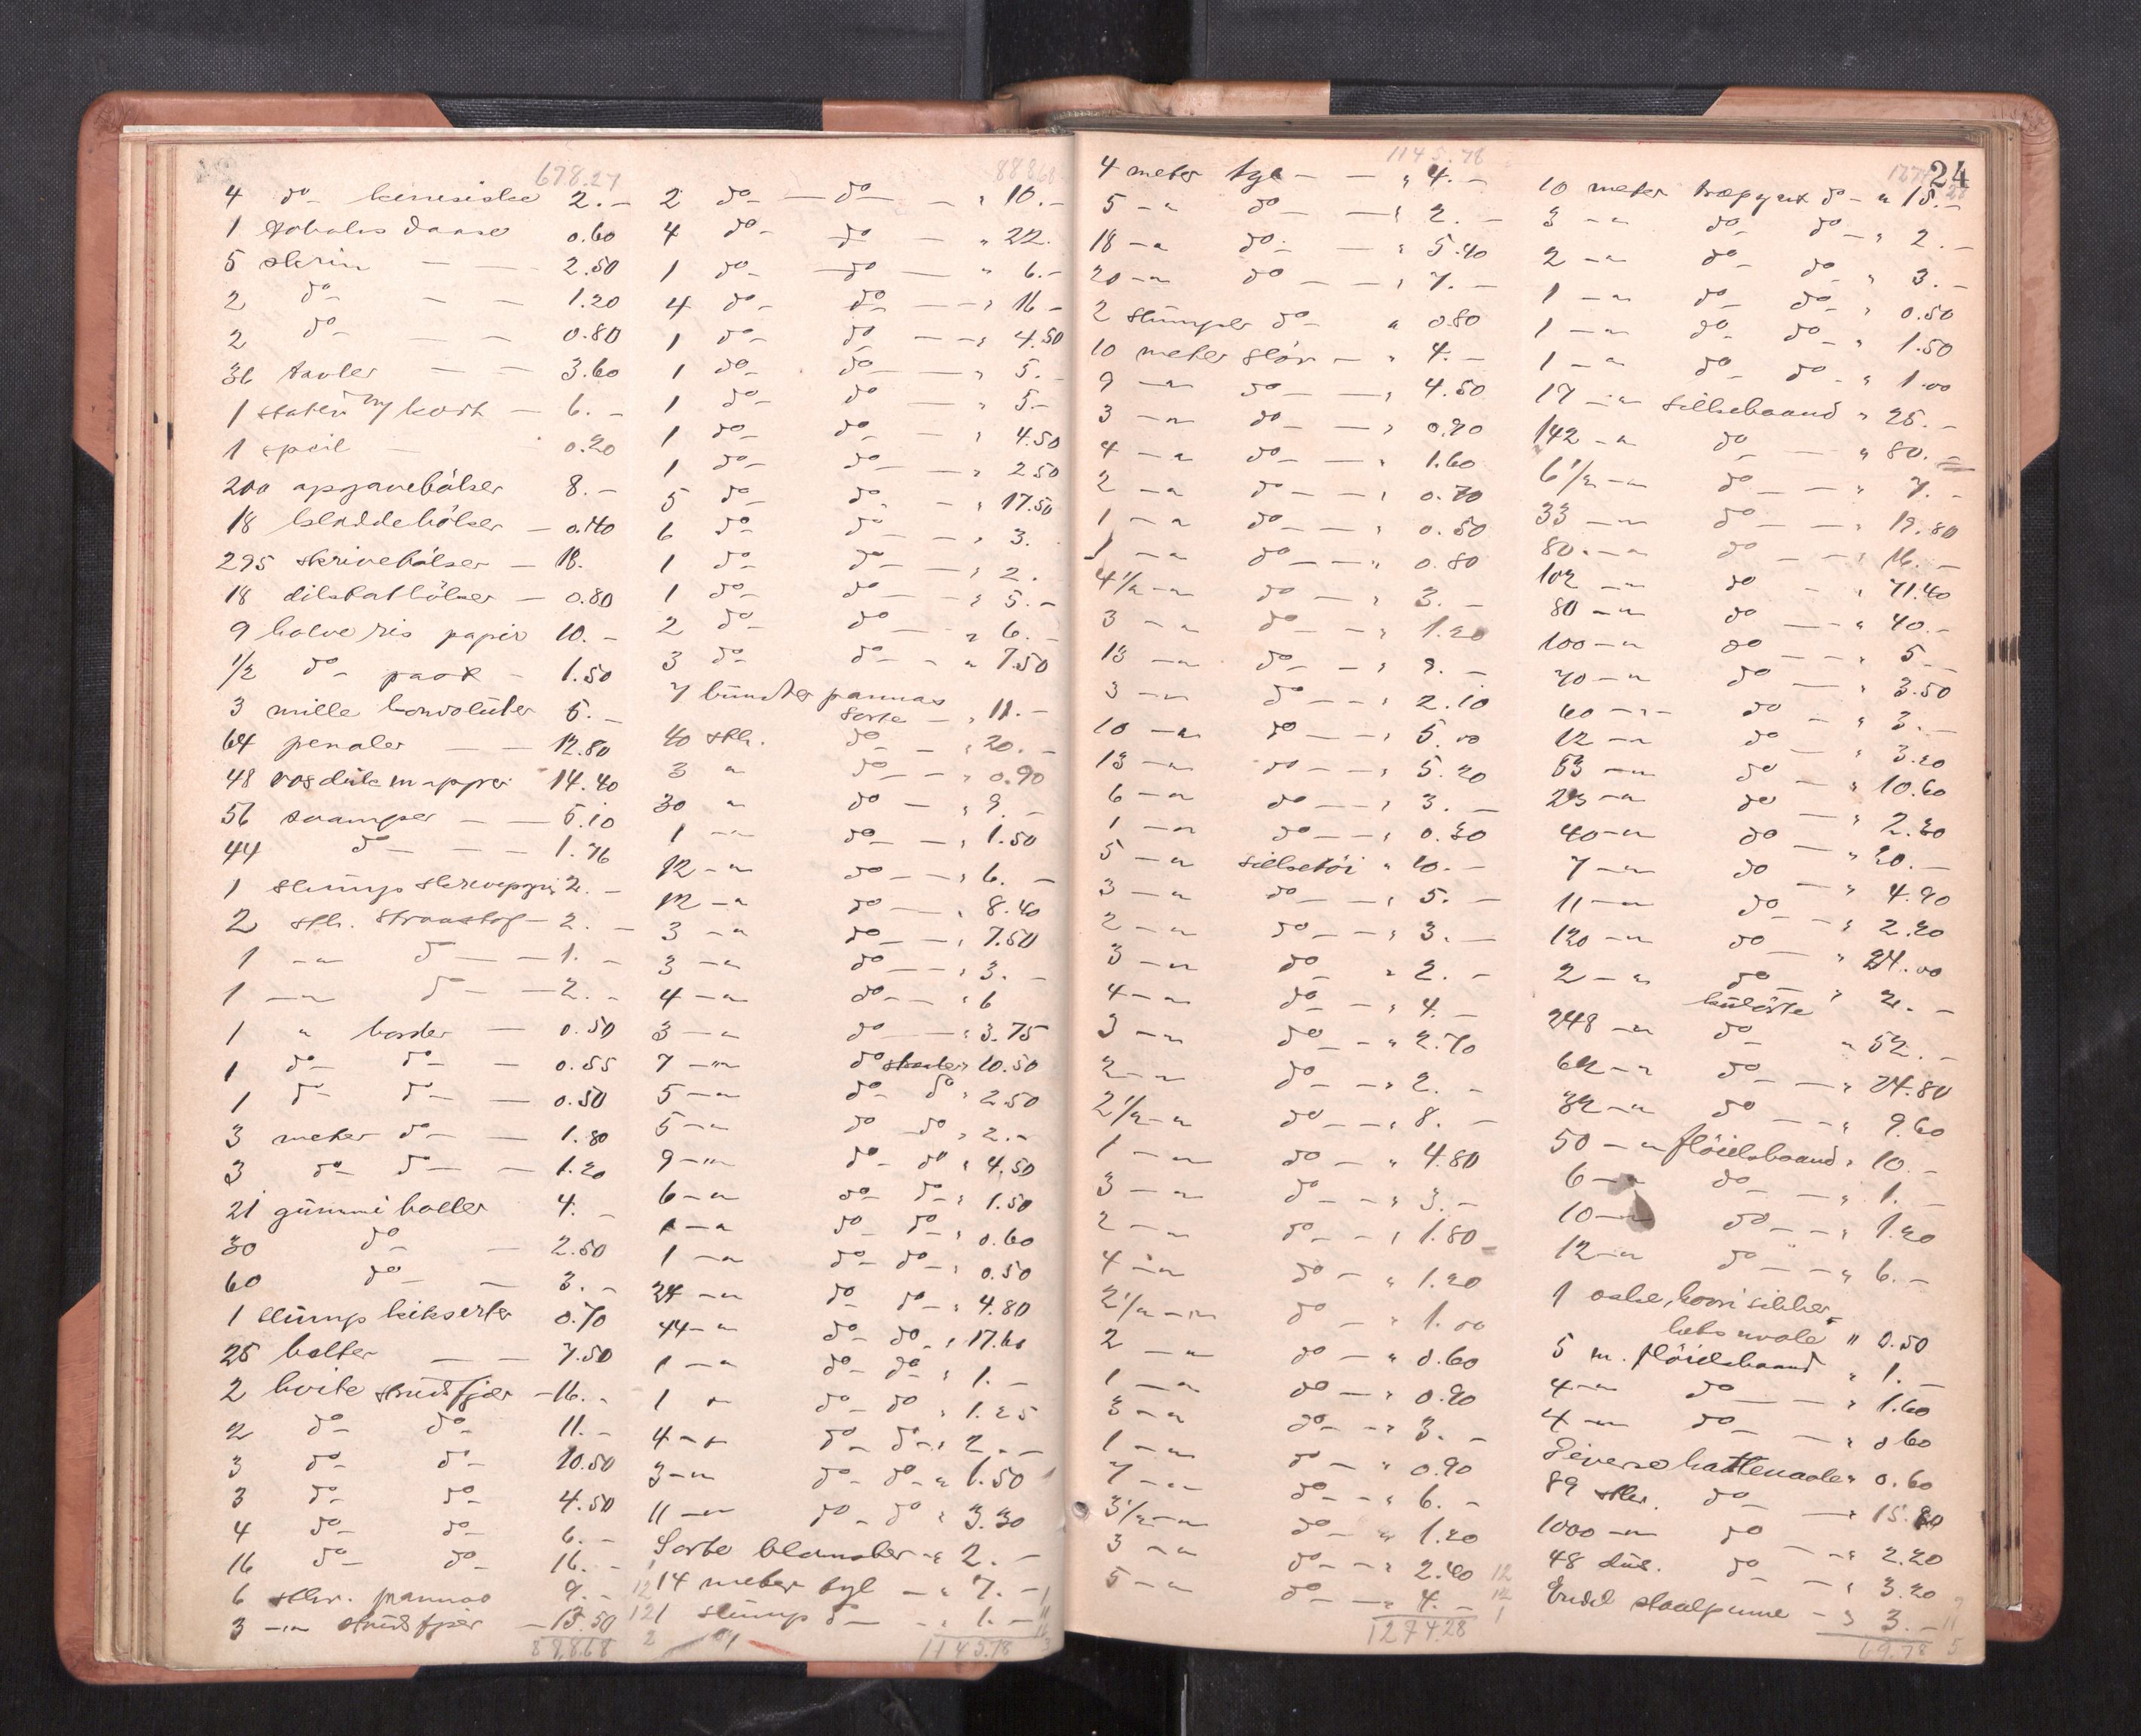 678.27
4 do kinesiske 2. –
1 tobaks daase 0.60
5 skrin — — 2.50
2 do – – 1.20
2 do – – 0.80
36 tavler — — 3.60
1 stativ m/ kort — 6. –
1 speil — 0.20
200 opgavebøker 8. –
18 kladdebøker — 0.40
295 skrivebøker — 18.
18 diktatbøker — 0.80
9 halve ris papir 10. –
1/2 do post – 1.50
3 mille konvoluter 5. –
64 penaler — — 12.80
48 voxduk mapper 14.40
56 svamper — — 5.10
44 do — — 1.76
1 slump skrivepapir 2. –
2 stk. straastof – 2. –
1 –"– do — – 1. –
1 –"– do — – 2. –
1 " border — 0.50
1 do do – 0.55
1 do do — 0.50
3 meter do – — 1.80
3 do do — – 1.20
21 gummi baller 4. –
30 do – 2.50
60 do – 3. –
1 slump kikserter 0.70
25 balter — — 7.50
2 hvite strudsfjær – 16. –
2 do do 11. –
3 do do 10.50
3 do do 4.50
4 do do 6. –
16 do do 16. –
6 stkr. pannas 9. –
3 –"– strudsfjær – 13.50
888.68
888.68
2 do — do — " 10. –
4 do do — " 22.
1 do do — " 6. –
4 do do — " 16 –
1 do do — " 4.50
1 do do — " 5. –
1 do do — " 5. –
1 do do — " 4.50
1 do do — " 2.50
5 do do – " 17.50
6 do do – " 3.
1 do do — " 2.
1 do do — " 5. –
2 do do — " 6. –
3 do do – " 7.50
7 bunder pannas
sorte — " 11. –
40 stk. do – " 20. –
3 " do – – " 0.90
30 " do — " 9. –
1 –"– do – – " 1.50
12 –"– do – – " 6. –
12 –"– do — " 8.40
3 –"– do – – " 7.50
3 –"– do — " 3. –
4 –"– do – – " 6
3 –"– do — " 3.75
7 –"– do " 10.50
5 –"– do do " 2.50
5 –"– do do " 2. –
9 –"– do do " 4.50
6 –"– do do " 1.50
1 –"– do do " 0.60
1 –"– do do " 0.50
24 –"– do do " 4.80
44 –"– do do " 17.60
1 –"– do do " 1. –
1 " do do " 1.25
4 –"– do do " 2. –
3 –"– do do " 1.50
11 –"– do do " 3.30
Sorte blomster " 2. –
14 meter tyl — " 7. –
1 slump do — " 1. –
1145.78
1145.78
4 meter tyl — — " 4. –
5 –"– do — " 2. –
18 –"– do — " 5.40
20 –"– do — — " 7. –
2 slumper do – " 0.80
10 meter slør — " 4. –
9 –"– do – — " 4.50
3 –"– do — " 0.90
4 –"– do — " 1.60
2 –"– do – — " 0.70
1 –"– do — — " 0.50
1 –"– do – — " 0.80
4 1/2 –"– do — " 3. –
3 –"– do – – " 1.20
13 –"– do – – " 9. –
3 –"– do — – " 2.10
10 –"– do — – " 5.00
13 –"– do – – " 5.20
6 –"– do – – " 3. –
1 –"– do – – " 0.30
5 –"– silketøi " 10. –
3 –"– do — – " 5. –
2 –"– do – – " 3. –
3 –"– do " 2. –
4 –"– do – " 4. –
3 –"– do – " 2.70
2 –"– do – – " 2. –
2 1/2 –"– do – – " 8. –
1 –"– do – " 4.80
3 –"– do – – " 3. –
2 –"– do – – " 1.80
4 –"– do – " 1.20
2 1/2 –"– do – " 1.00
2 –"– do – " 0.60
1 –"– do – " 0.90
3 –"– do – – " 3. –
1 –"– do – " 0.90
7 –"– do – – " 6. –
3 1/2 –"– do – " 1.20
3 –"– do – – " 2.40
5 –"– do – – " 4. –
1274.28
24
10 meter do – " 15. –
3 –"– do do – " 2. –
2 –"– do do " 3. –
1 –"– do do " 0.50
1 –"– do do " 1.50
1 –"– do do " 1.00
17 –"– silkebaand " 25. –
142 –"– do — " 80. –
6 1/2 –"– do — " 7. –
33 –"– do — — " 19.80
80 –"– do – – " 16. –
102 –"– do – " 71.40
80 –"– do — " 40. –
100 –"– do — " 5 –
70 –"– do — " 3.50
60 –"– do – " 3. –
12 –"– do " 3.20
53 –"– do – " 10.60
23 –"– do " 2.30
40 –"– do " 20. –
7 –"– do – " 4.90
11 –"– do – " 2.20
120 –"– do – " 24.00
2 –"– do " 2. –
kulørte
248 –"– do " 52. –
62 –"– do — " 24.80
32 –"– do – " 9.60
50 –"– fløielsbaand " 10. –
6 –"– do – " 1. –
10 –"– do – – " 1.20
12 –"– do – – " 6. –
" 0.50
5 m. fløielsbaand " 1. –
4 –"– do — " 1.60
4 –"– do – " 0.60
Diverse hattenaale " 0.60
89 stkr. do — " 15.80
1000 –"– do – " 2.20
48 dus. do – " 3.20
Endel staalpenne – " 3. –
69.78